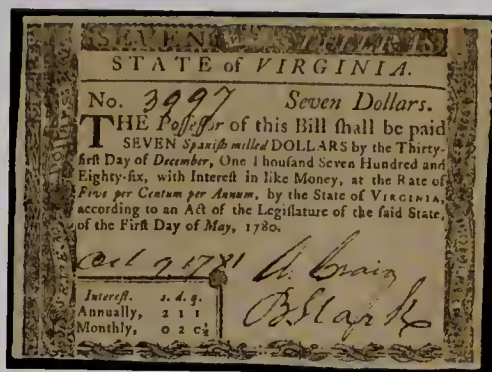 STATE of VIRGINIA.
No. 3997 Seven Dollars.
THE Poſſeſſor of this Bill ſhall be paid
SEVEN Spaniſh milled DOLLARS by the Thirty-
firſt Day of December, One Thouſand Seven Hundred and
Eighty-ſix, with Intereſt in like Money, at the Rate of
Five per Centum per Annum, by the State of VIRGINIA,
according to an Act of the Legiſlature of the ſaid State,
of the Firſt Day of May, 1780.
1781 A Craig
B Stark
Intereſt. s. d. q.
Annually, 2 1 1
Monthly, 0 2 0½